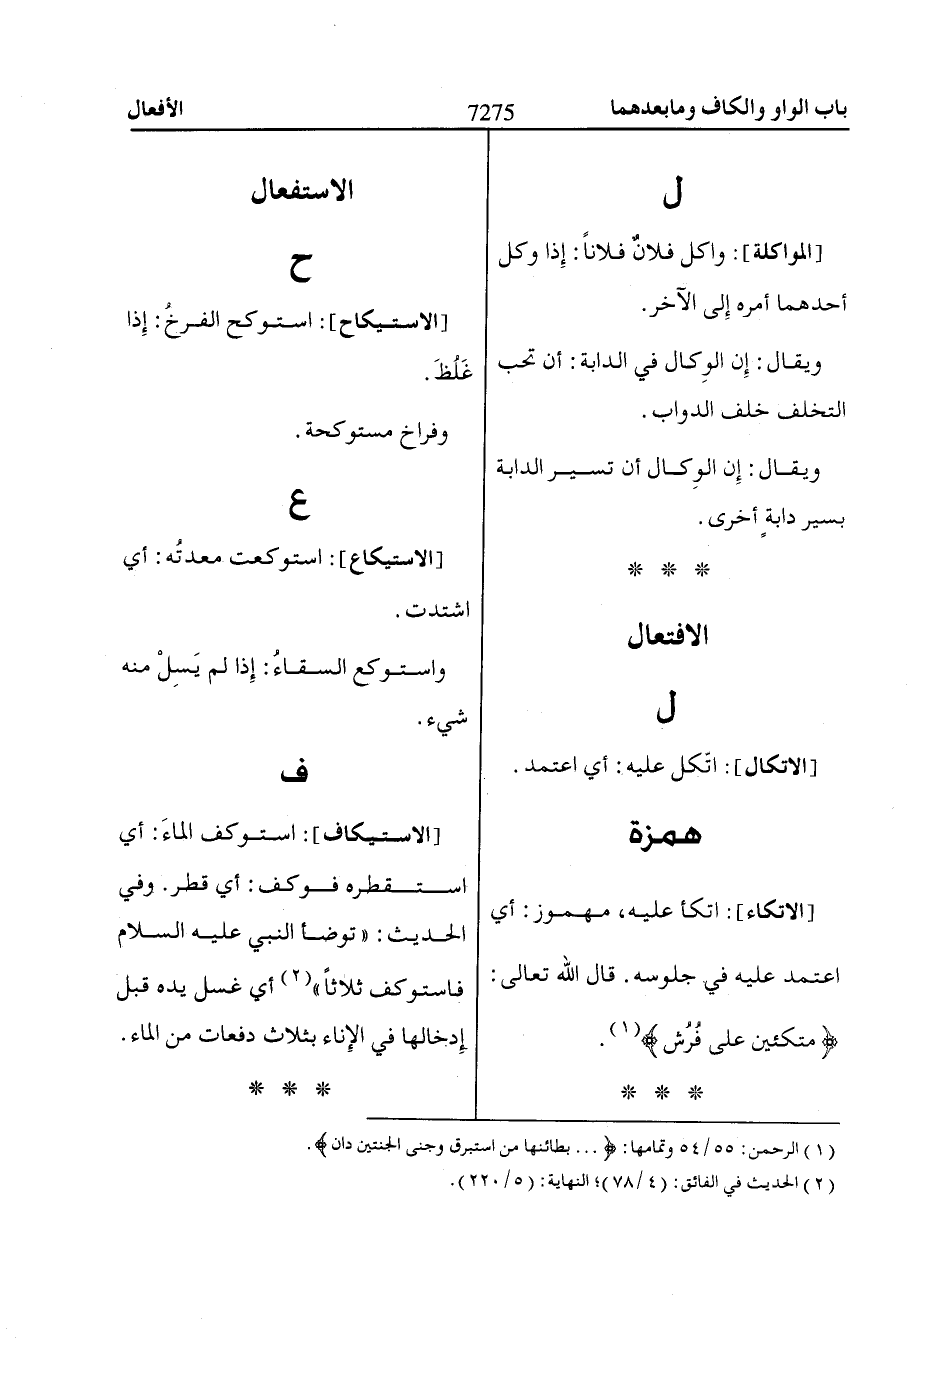 باب الواو والكاف ومابعدهما
7275
الأفعال
ل
[المواكلة]: واكل فلانٌ فلاناً: إذا وكل
أحدهما أمره إلى الآخر.
ويقال: إن الوِكال في الدابة: أن تحب
التخلف خلف الدواب.
ويقال: إن الوِكال أن تسير الدابة
بسير دابةٍ أخرى.
* * *
الافتعال
ل
[الاتكال]: اتّكل عليه: أي اعتمد.
همزة
[الاتكاء]: اتكأ عليه، مهموز: أي
اعتمد عليه في جلوسه. قال الله تعالى:
﴿متكئين على فُرُش﴾(١).
* * *
الاستفعال
ح
[الاستيكاح]: استوكح الفرخُ: إذا
غَلُظَ.
وفراخ مستوكحة.
ع
[الاستيكاع]: استوكعت معدتُه: أي
اشتدت.
واستوكع السقاءُ: إذا لم يَسِلْ منه
شيء.
ف
[الاستيكاف]: استوكف الماءَ: أي
استقطره فوكف: أي قطر. وفي
الحديث: «توضأ النبي عليه السلام
فاستوكف ثلاثاً»(٢) أي غسل يده قبل
إدخالها في الإناء بثلاث دفعات من الماء.
* * *
(١) الرحمن: ٥٤/٥٥ وتمامها: ﴿... بطائنها من استبرق وجنى الجنتين دان﴾.
(٢) الحديث في الفائق: (٧٨/٤)؛ النهاية: (٢٢٠/٥).